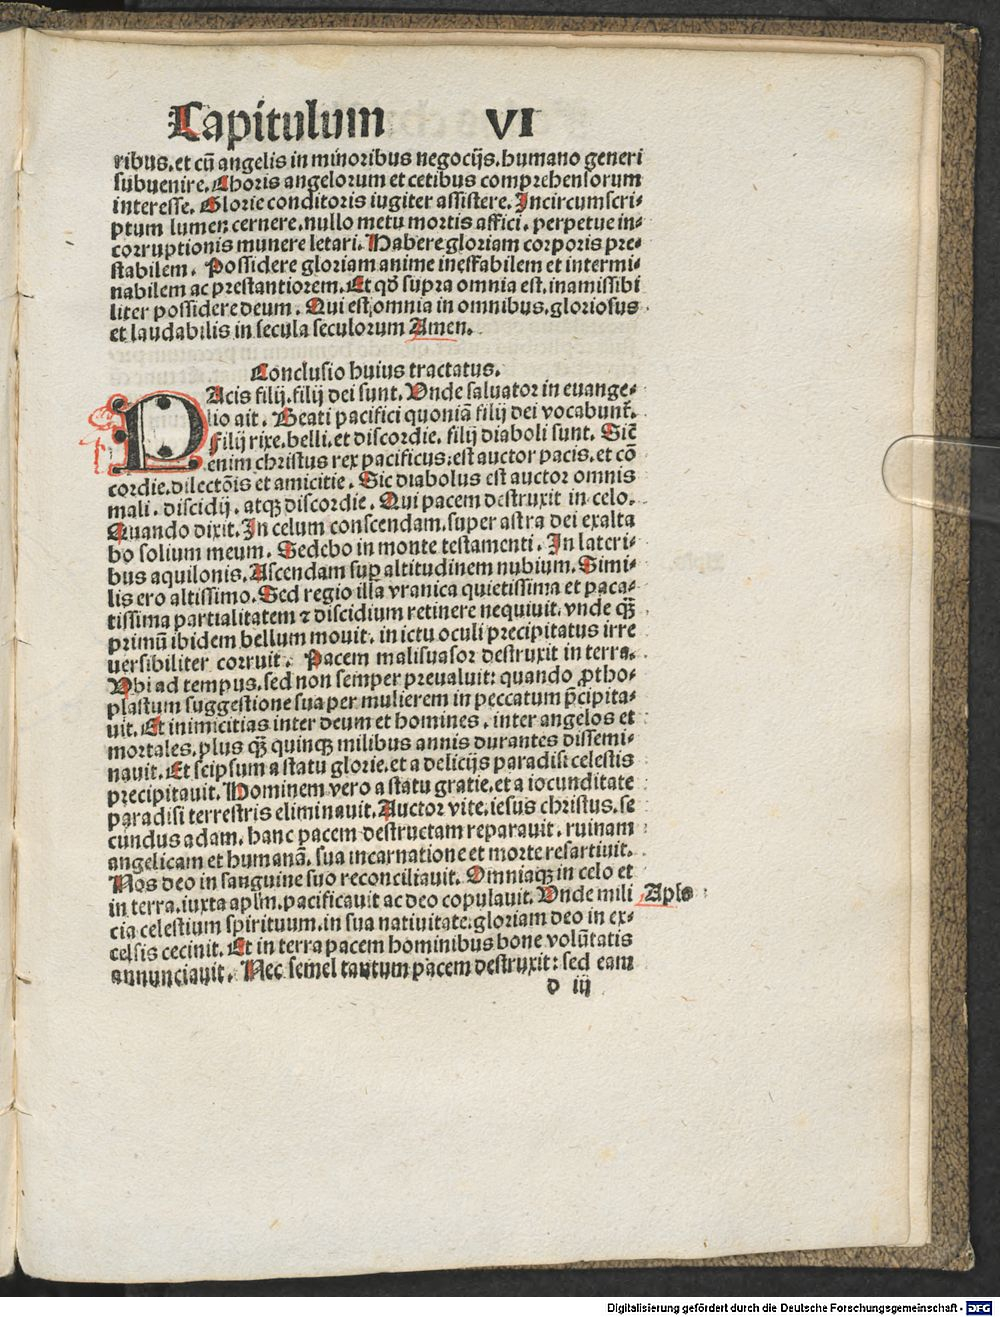 Capitulum VI
ribus. et cū angelis in minoribus negocijs. humano generi
subuenire. Choris angelorum et cetibus comprehensorum
interesse. Glorie conditoris iugiter assistere. Incircumscri-
ptum lumen cernere. nullo metu mortis affici. perpetue in-
corruptionis munere letari. Habere gloriam corporis pre-
stabilem. Possidere gloriam anime ineffabilem et intermi-
nabilem ac prestantiorem. Et qđ supra omnia est. inamissibi
liter possidere deum. Qui est omnia in omnibus. gloriosus
et laudabilis in secula seculorum Amen.
Conclusio huius tractatus.
PAcis filij. filij dei sunt. Unde saluator in euange-
lio ait. Beati pacifici quoniā filij dei vocabunt᷑.
Filij rixe. belli. et discordie. filij diaboli sunt. Sic̄
enim christus rex pacificus: est auctor pacis. et cō
cordie. dilectōis et amicitie. Sic diabolus est auctor omnis
mali. discidij. atqꝫ discordie. Qui pacem destruxit in celo.
Quando dixit. In celum conscendam. super astra dei exalta
bo solium meum. Sedebo in monte testamenti. In lateri-
bus aquilonis. Ascendam suꝑ altitudinem nubium. Simi-
lis ero altissimo. Sed regio illa vranica quietissima et paca-
tissima partialitatem ⁊ discidium retinere nequiuit. vnde qꝫ̄
primū ibidem bellum mouit. in ictu oculi precipitatus irre
uersibiliter corruit. Pacem malisuasor destruxit in terra.
Vbi ad tempus. sed non semper preualuit: quando ꝓtho-
plastum suggestione sua per mulierem in peccatum p̄cipita-
uit. Et inimicitias inter deum et homines. inter angelos et
mortales. plus qꝫ̄ quinqꝫ milibus annis durantes dissemi-
nauit. Et seipsum a statu glorie. et a delicijs paradisi celestis
precipitauit. Hominem vero a statu gratie. et a iocunditate
paradisi terrestris eliminauit. Auctor vite. iesus christus. se
cundus adam. hanc pacem destructam reparauit. ruinam
angelicam et humanā. sua incarnatione et morte resartiuit.
Nos deo in sanguine suo reconciliauit. Omniaqꝫ in celo et
in terra. iuxta aplm̄. pacificauit ac deo copulauit. Unde mili
Apls
cia celestium spirituum. in sua natiuitate. gloriam deo in ex-
celsis cecinit. Et in terra pacem hominibus bone volūtatis
annunciauit. Nec semel tantum pacem destruxit: sed eam
d iij
Digitalisierung gefördert durch die Deutsche Forschungsgemeinschaft - DFG